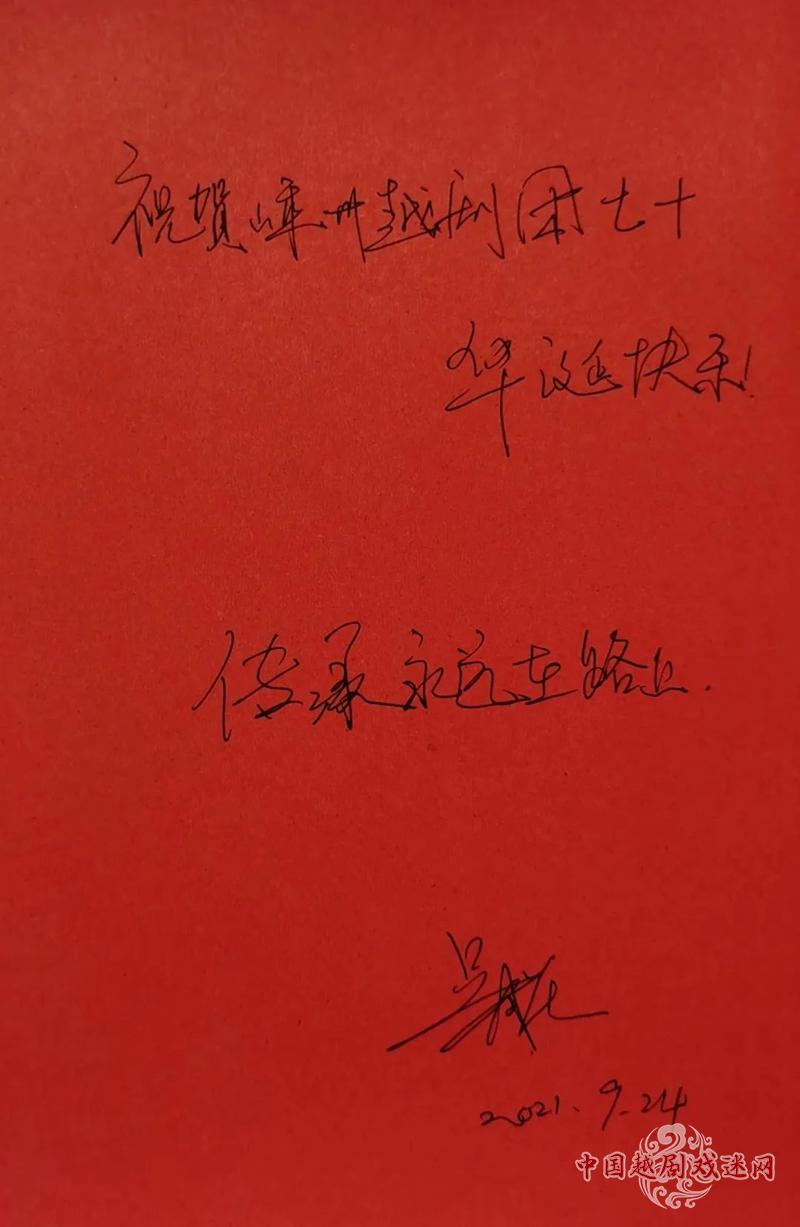 祝賀嵊州越剧团七十
华诞快乐!
传承永远在路上.
2021.9.24
中国越剧戏迷网